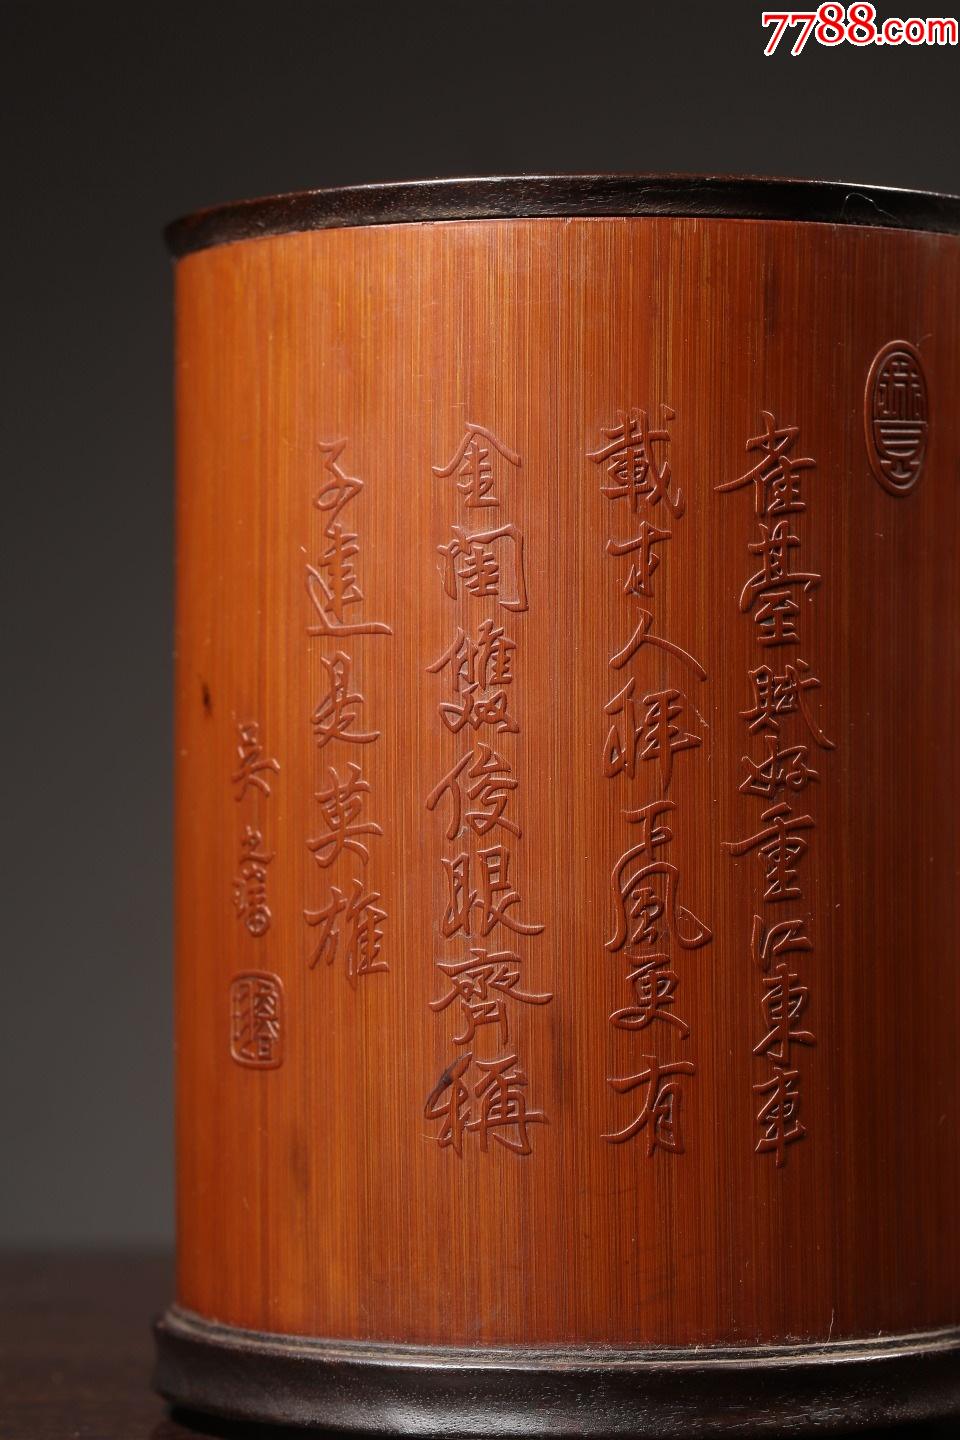 7788.com
雀臺賦好重江東車
載才人拜下風更有
金閨雙俊眼齊稱
子建是英雄
吳之璠